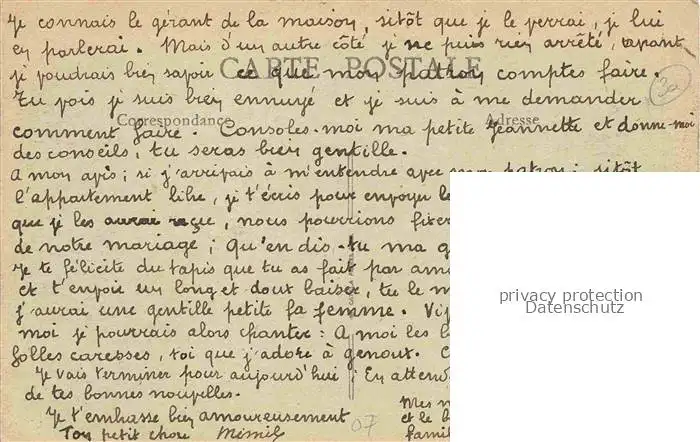 Je connais le gérant de la maison, sitôt que je le verrai, je lui
en parlerai. Mais d'un autre côté je ne puis rien arrêté, avant
je voudrais bien savoir ce que mon patron comptes faire.
CARTE POSTALE
Tu vois je suis bien ennuyé et je suis à me demander
Correspondance
Adresse
comment faire. Consoles-moi ma petite Jeannette et donne-moi
des conseils, tu seras bien gentille.
A mon avis; si j'arrivais à m'entendre avec mon patron; sitôt
l'appartement libre, je t'écris pour envoyer le
que je les aurai reçue, nous pourrions fixer
de notre mariage; qu'en dis-tu ma g
Je te félicite du tapis que tu as fait par
et t'envoie un long et doux baiser, tu le m
j'aurai une gentille petite fa femme. Vi
moi je pourrais alors chanter: A moi les
folles caresses, toi que j'adore à genout. C
Je vais terminer pour aujourd'hui; En attend
de tes bonnes nouvelles.
Je t'embasse bien amoureusement
Ton petit chose Mimil
Mes
et le b
famil
07
3a
privacy protection
Datenschutz